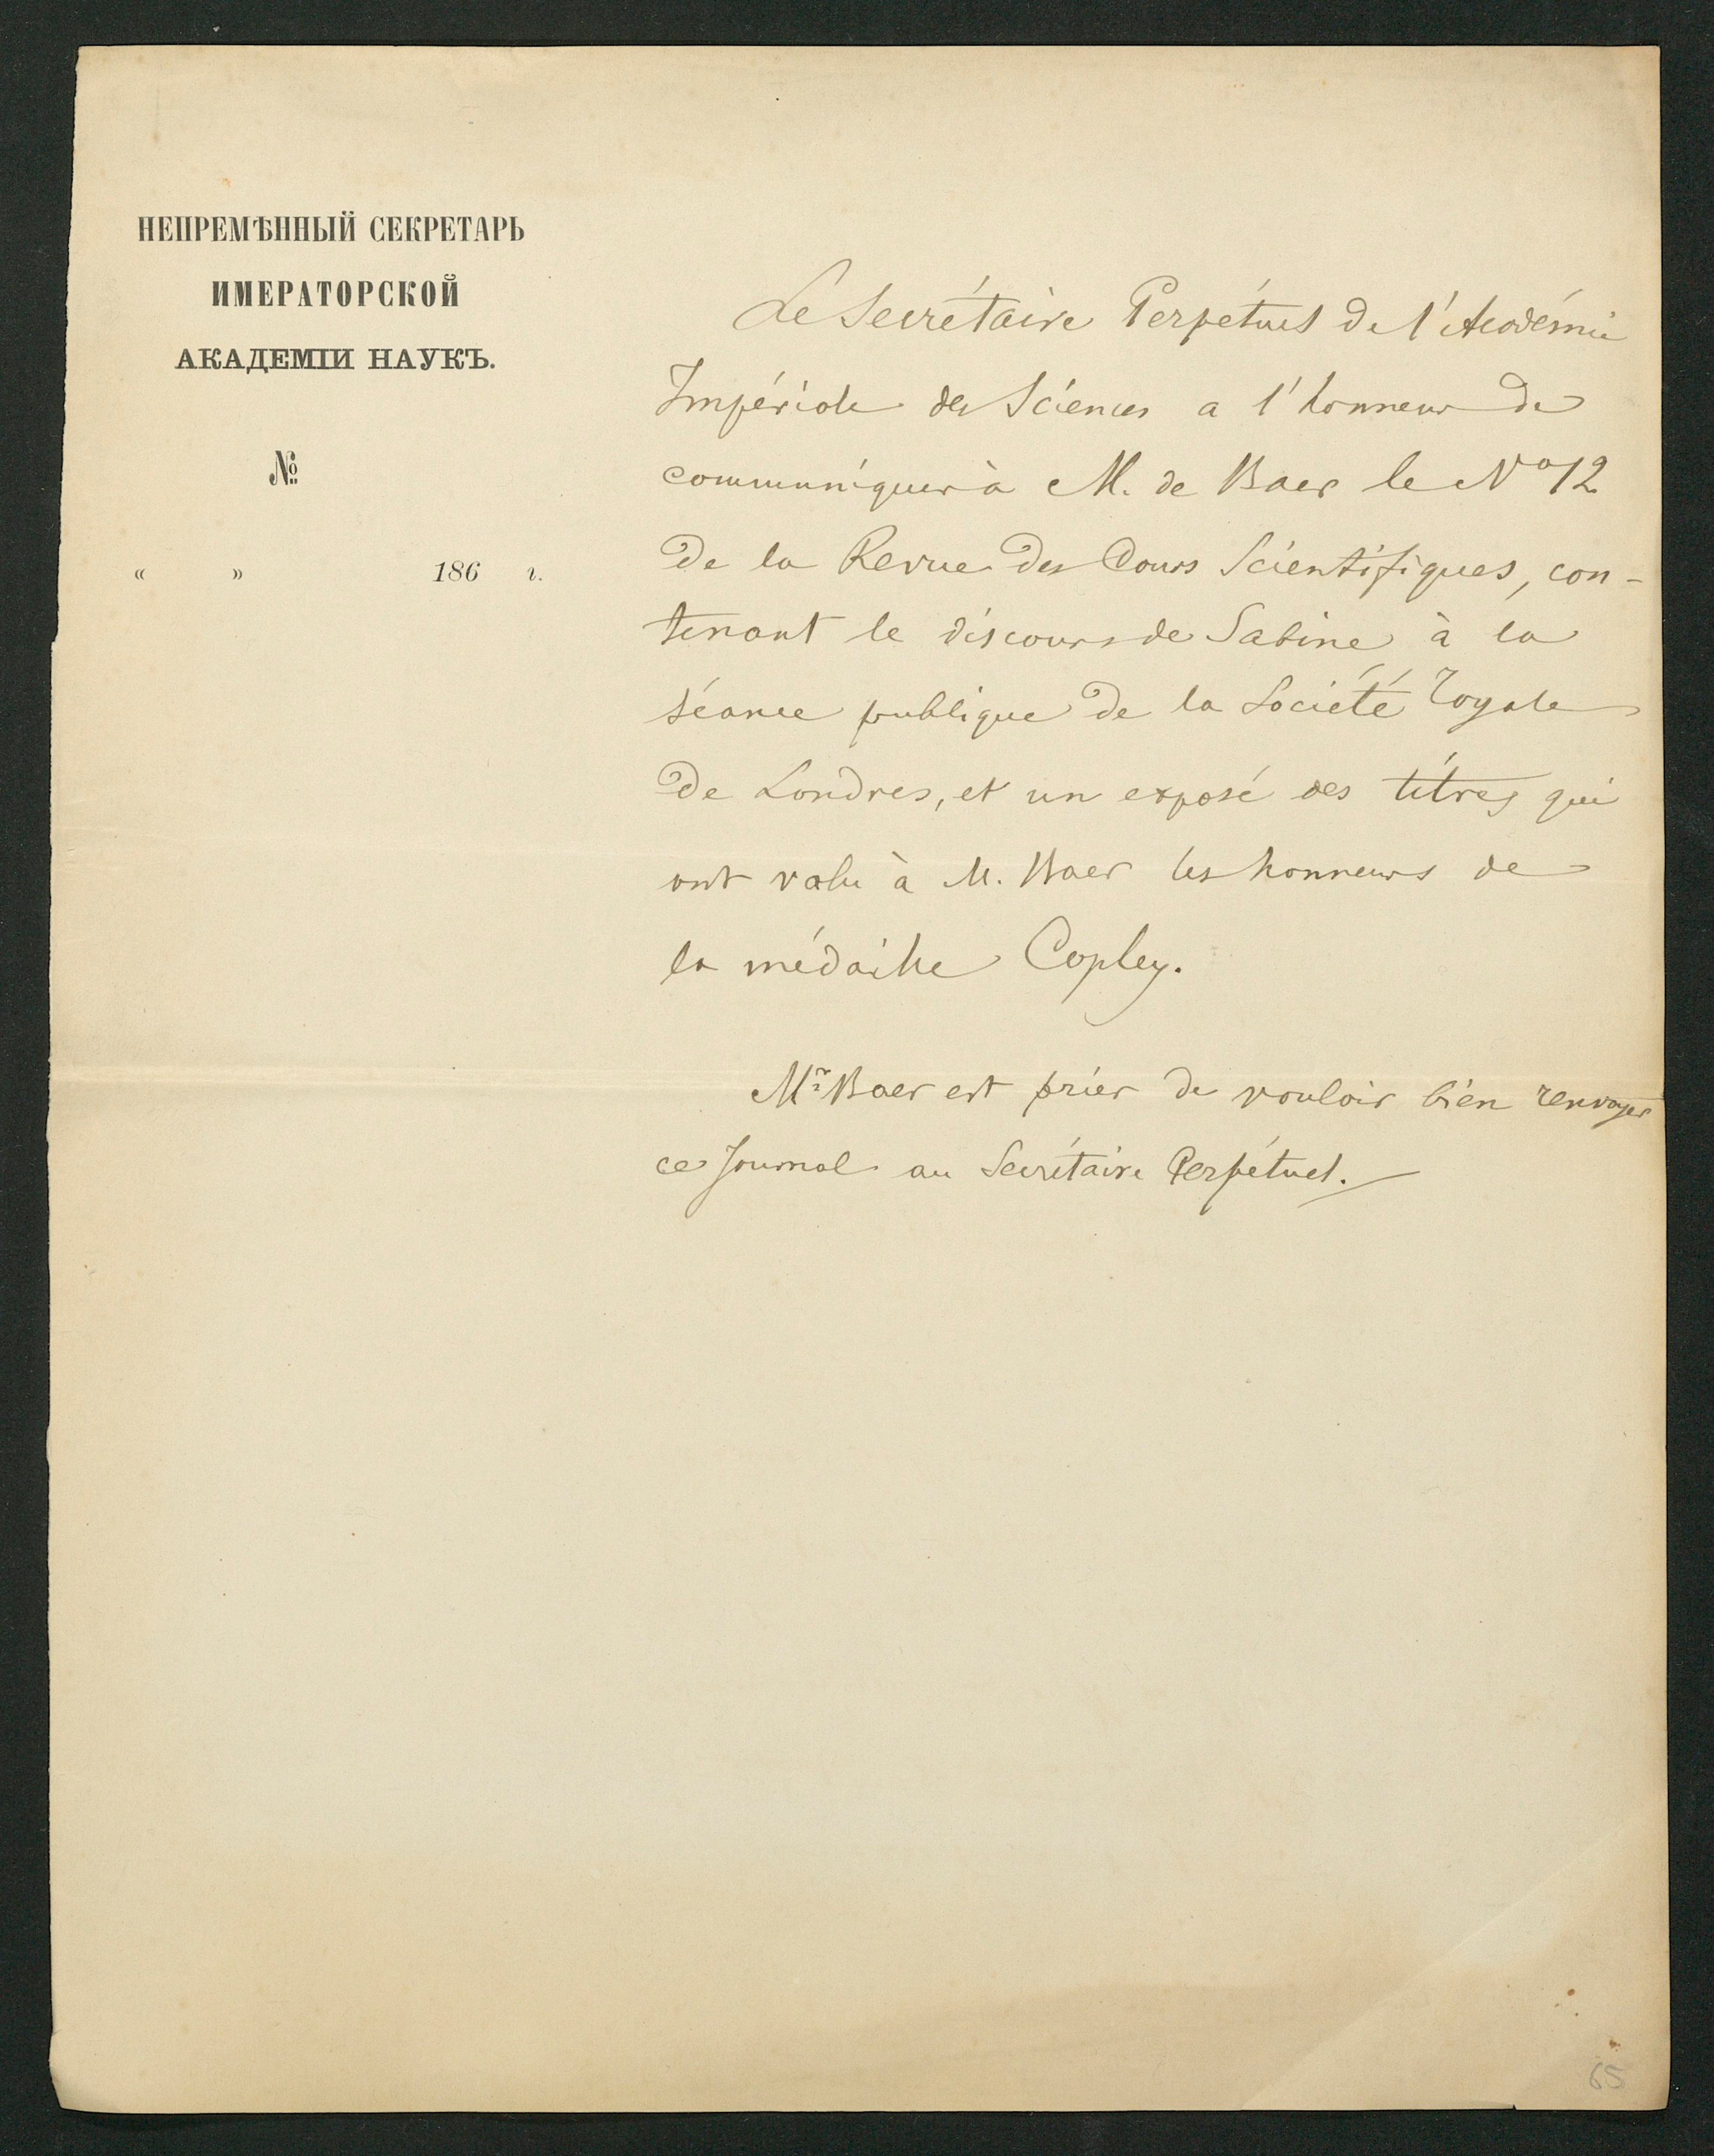 НЕПРЕМѢННЫЙ СЕКРЕТАРЬ
ИМЕРАТОРСКОЙ
АКАДЕМІИ НАУКЪ.
№
« » 186 г.
Le Secrétaire Perpétuel de l'Académie
Impériale des Sciences a l'honneur de
communiquer à M. de Baer le No 12
de la Revue des Cours Scientifiques, con-
tenant le discours de Sabine à la
séance publique de la Société royale
de Londres, et un exposé des titres qui
ont valu à M. Baer les honneurs de
la médaille Copley.
Mr Baer est prier de vouloir bien renvoyer
ce Journal au Secrétaire Perpétuel.
65